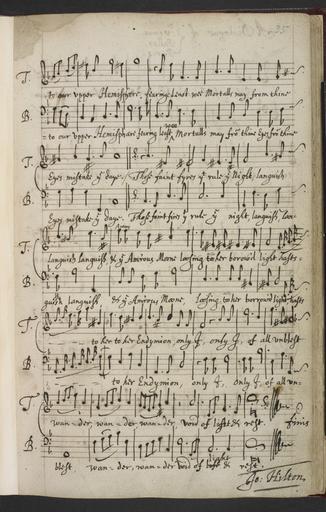 T.
to our upper Hemisphare, fearing Least wee Mortalls may from thine
B.
to our upper Hemisphare fearing least wee Mortalls may frō thine Eyes frō thine
T.
Eyes mistake yᵉ daye. Those faint fyres yᵗ rule yᵉ Night, languish
B.
Eyes mistake yᵉ daye. Those faint fyres yᵗ rule yᵉ night, languish lan-
T.
languish languish & yᵉ Amorous Moone loosing to her borrow'd light hasts
B.
guish languish & yᵉ Amorous Moone, Loosing to her borrow'd light hasts
T.
to her to her Endymion only I, only I, of all unblest
B.
to her Endymion, only I, only I, of all un-
T.
wan-der, wan-der wan-der, void of light & rest. finis
B.
blest wan-der, wan-der void of light & rest.
Jo: Hilton